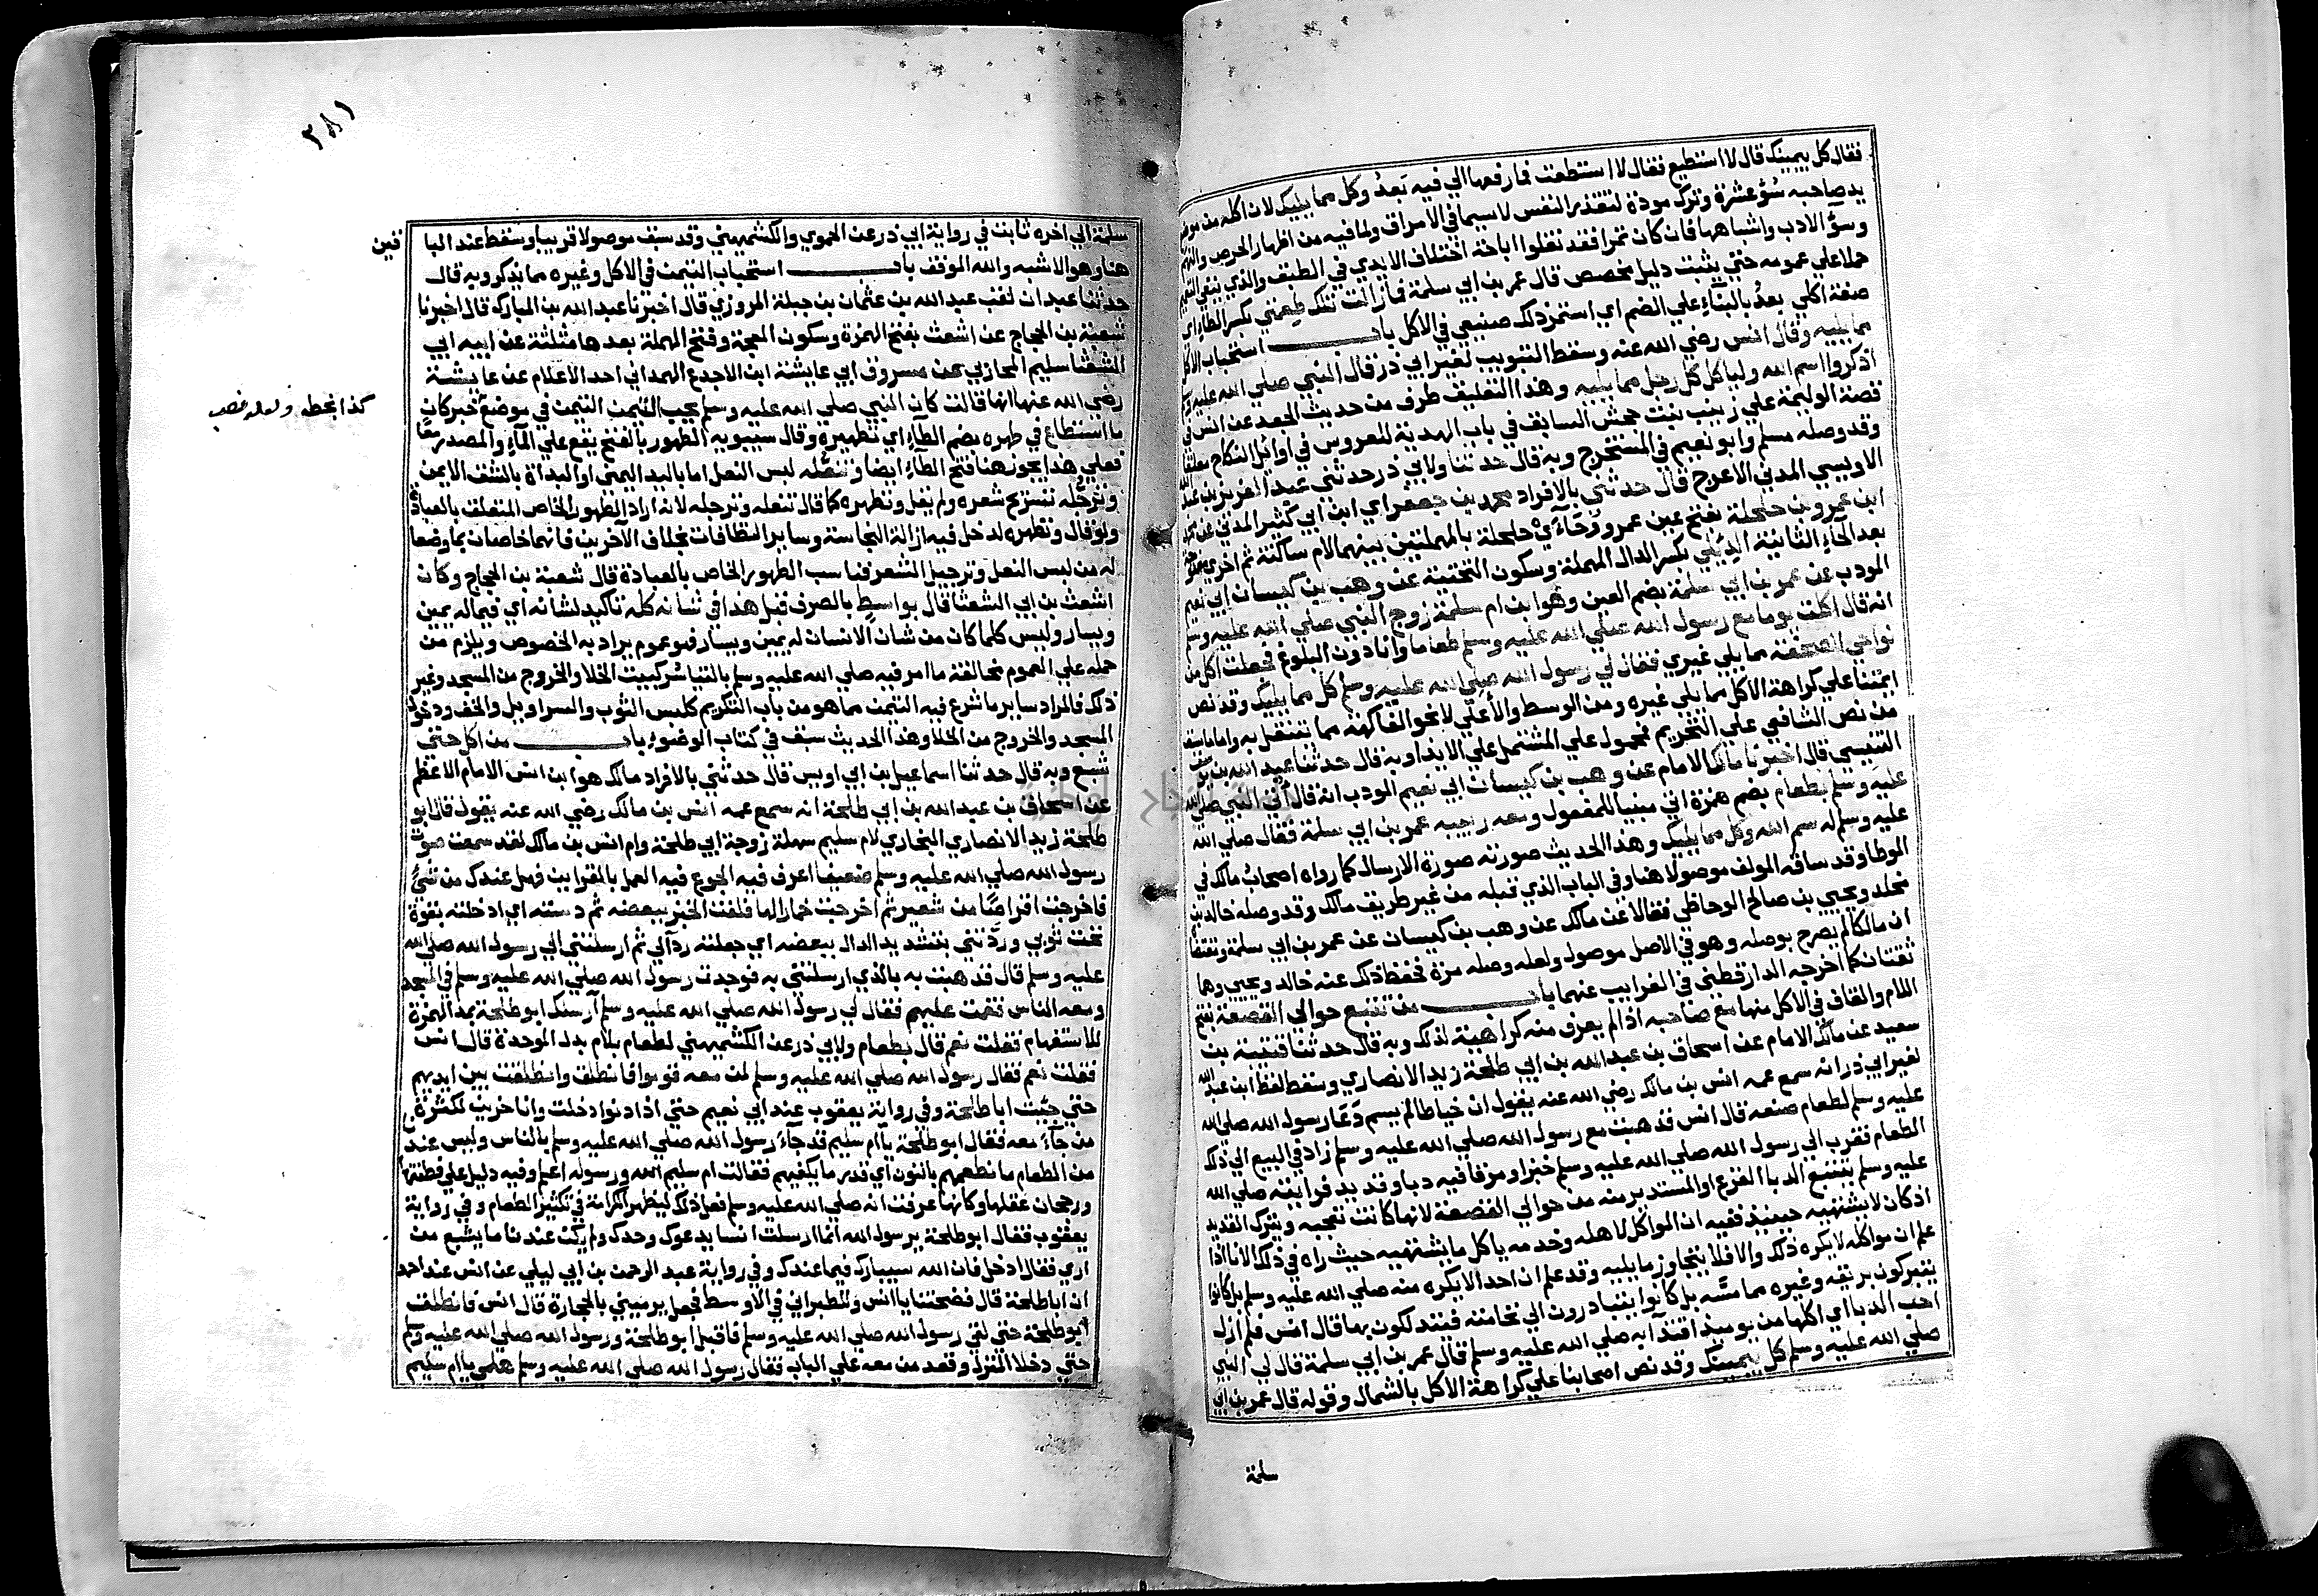 فقال كل بيمينك قال لا استطيع فقال لا استطعت فما رفعها الي فيه بعدُ وكل مما يليك لان اكله من موضع
يد صاحبه سُوٌ عشرة وترك مودة لتقذر النفس لا سيما في الامراق ولما فيه من اظهار الحرص والنهم
وسوٌ الادب واشباهها فان كان تمرا فقد نقلوا اباحة اختلاف الايدي في الطبق والذي ينبغي التعميم
حملا علي عمومه حتي يثبت دليل مخصص قال عمر بن ابي سلمة فما زالت تلك طِعمتي بكسر الطاءِ اي
صفة اكلي بعدُ بالبناءِ علي الضم اي استمر ذلك صنيعي في الاكل باب استحباب الاكل
مما يليه وقال انس رضي الله عنه وسقط التبويب لغير ابي ذر قال النبي صلي الله عليه و
اذكروا اسم الله وليا كل كل رجل مما يليه وهذا التعليق طرف من حديث الجعد عن انس في
قصة الوليمة علي زينب بنت جحش السابق في باب الهدية للعروس في اوائل النكاح معلقا
وقد وصله مسلم وابو نعيم في المستخرج وبه قال حدثنا ولابي ذر حدثني عبد العزيز بن عبد الله
الاويسي المدني الاعرج قال حدثني بالافراد محمد بن جعفر اي ابن ابي كثير المدني عن محمد
ابن عمرو بن حلحلة بفتح عين عمرو وحَاءَيْ حلحلة بالمهملتين بينهما لام ساكنة ثم اخري
بعد الحاءِ الثانية الدِيْلي بكسر الدال المهملة وسكون التحتية عن وهب بن كيسان ابي نعيم
المودب عن عمر بن ابي سلمة بضم العين وهو ابن ام سلمة زوج النبي صلي الله عليه وسلم
انه قال اكلت يوما مع رسول الله صلي الله عليه وسلم طعاما وانا دون البلوغ فجعلت اكل من
نواحي الصحفة مما يلي غيري فقال لي رسول الله صلي الله عليه وسلم كل مما يليك وقد نص
ايمتنا علي كراهة الاكل مما يلي غيره ومن الوسط والاعلي لا نحو الفاكهة مما تنتقل به واما ما سبق
من نص الشافعي علي التحريم فمحمول علي المشتمل علي الايذاوبه قال حدثنا عبد الله بن يوسف
التنيسي قال اخبرنا مالك الامام عن وهب بن كيسان ابي نعيم المودب انه قال أُتي النبي صلي الله
عليه وسلم بطعام بضم همزة اتي مبنيا للمفعول ومعه ربيبه عمر بن ابي سلمة فقال صلي الله
عليه وسلم له سم الله وكل مما يليك وهذا الحديث صورته صورة الارسال كما رواه اصحاب مالك في
الموطا وقد ساقه المولف موصولا هنا وفي الباب الذي قبله من غير طريق مالك وقد وصله خالد بن
مخلد ويحيي بن صالح الوحاظي فقالا عن مالك عن وهب بن كيسان عن عمر بن ابي سلمة
ان مالكا لم يصرح بوصله وهو في الاصل موصول ولعله وصله مرة فحفظ ذلك عنه خالد ويحيي وهما
ثقتان كما اخرجه الدارقطني في الغرايب عنهما باب من تتبع حوالي القصعة بفتح
اللام والقاف في الاكل منها مع صاحبه اذا لم يعرف منه كراهية لذلك وبه قال حدثنا قتيبة بن
سعيد عن مالك الامام عن اسحاق بن عبد الله بن ابي طلحة زيد الانصاري وسقط لفظ ابن عبد الله
لغير ابي ذر انه سمع عمه انس بن مالك رضي الله عنه يقول ان خياطا لم يسم دَعَا رسول الله صلي الله
عليه وسلم لطعام صنعه قال انس فذهبت مع رسول الله صلي الله عليه وسلم زاد في البيع الي ذلك
الطعام فقرب الي رسول الله صلي الله عليه وسلم خبزا ومرقا فيه دبا وقديد فرايته صلي الله
عليه وسلم يتتبع الدبا القرع او المستدير منه من حوالي القصعة لانها كانت تعجبه ويترك القديد
اذ كان لا يشتهيه حينيذ ففيه ان المواكل لاهله وخدمه ياكل ما يشتهيه حيث راه في ذلك الانا اذا
علم ان مواكله لا يكره ذلك والا فلا يتجاوز ما يليه وقد علم ان احدا لا يكره منه صلي الله عليه وسلم بل كانوا
يتبركون بريقه وغيره مما مسّه بل كانوا يتبادرون الي نخامته فيتدلكون بها قال انس فلم ازل
احب الدبا اي اكلها من يوميذ اقتدآ به صلي الله عليه وسلم قال عمر بن ابي سلمة قال لي النبي
صلي الله عليه وسلم كل بيمينك وقد نص اصحابنا علي كراهة الاكل بالشمال وقوله قال عمر بن ابي
سلمة
٣٨١
سلمة الي اخره ثابت في رواية ابي ذر عن الحموي والكشميهني وقد سبق موصولا قريبا وسقط عند البا
قين
هنا وهو الاشبه والله الموفق باب استحباب التيمن في الاكل وغيره مما يذكر وبه قال
حدثنا عبدان لقب عبد الله بن عثمان بن جبلة المروزي قال اخبرنا عبد الله بن المبارك قال اخبرنا
شعبة بن الحجاج عن اشعث بفتح الهمزة وسكون المعجمة وفتح المهملة بعدها مثلثة عن ابيه ابي
الشعثا سليم المحاربي عن مسروق ابي عايشة ابن الاجدع الهمداني احد الاعلام عن عايشة
رضي الله عنها انها قالت كان النبي صلي الله عليه وسلم يحب التيمن التيمن في موضع خبر كان
كذا بخطه ولعله نصب
ما استطاع في طهره بضم الطاءِ اي تطهيره وقال سيبويه الطهور بالفتح يقع علي الماءِ والمصدر معًا
فعلي هذا يجوز هنا فتح الطاءِ ايضا وتنعّله لبس النعل اما باليد اليمني او البداة بالشق الايمن
وترجّله تسريح شعره ولم يقل وتطهره كما قال تنعله وترجله لانه اراد الطهور الخاص المتعلق بالعبادة
ولو قال وتطهره لدخل فيه ازالة النجاسة وساير النظافات بخلاف الآخرين فانهما خاصان بما وضعا
له من لبس النعل وترجيل الشعر فناسب الطهور الخاص بالعبادة قال شعبة بن الحجاج وكان
اشعث بن ابي الشعثا قال بواسطٍ بالصرف قبل هذا في شانه كله تاكيد لشانه اي فيما له يمين
ويسار وليس كلما كان من شان الانسان له يمين ويسار فهو عموم يراد به الخصوص ويلزم من
حمله علي العموم مخالفة ما امر فيه صلي الله عليه وسلم بالتياسُر كبيت الخلا والخروج من المسجد وغير
ذلك فالمراد ساير ما شرع فيه التيمن مما هو من باب التكريم كلبس الثوب والسراويل والخف ودخول
المسجد والخروج من الخلا وهذا الحديث سبق في كتاب الوضوءِ باب من اكل حتي
شبع وبه قال حدثنا اسماعيل بن ابي اويس قال حدثني بالافراد مالك هو ابن انس الامام الاعظم
عن اسحاق بن عبد الله بن ابي طلحة انه سمع عمه انس بن مالك رضي الله عنه يقول قال ابو
طلحة زيد الانصاري البخاري لام سليم سهلة زوجة ابي طلحة وام انس بن مالك لقد سمعت صوت
رسول الله صلي الله عليه وسلم ضعيفا اعرف فيه الجوع فيه العمل بالقراين فهل عندك من شيٌ
فاخرجت اقراصًا من شعير ثم اخرجت خمارا لها فلفت الخبز ببعضه ثم دسته اي ادخلته بقوة
تحت ثوبي وردّتني بتشديد الدال ببعضه اي جعلته ردآ لي ثم ارسلتني الي رسول الله صلي الله
عليه وسلم قال فذهبت به بالذي ارسلتني به فوجدت رسول الله صلي الله عليه وسلم في المسجد
ومعه الناس فقمت عليهم فقال لي رسول الله صلي الله عليه وسلم آرسلك ابو طلحة بمد الهمزة
للاستفهام فقلت نعم قال بطعام ولابي ذر عن الكشميهني لطعام بلام بدل الموحدة قال انس
فقلت نعم فقال رسول الله صلي الله عليه وسلم لمن معه قوموا فانطلق وانطلقت بين ايديهم
حتي جيت ابا طلحة وفي رواية يعقوب عند ابي نعيم حتي اذا دنوا دخلت وانا حزين لكثرة
من جآءَ معه فقال ابو طلحة يا ام سليم قد جآءَ رسول الله صلي الله عليه وسلم بالناس وليس عند
من الطعام ما نطعمهم بالنون اي قدر ما يكفيهم فقالت ام سليم الله ورسوله اعلم وفيه دليل علي فطنتها
ورجحان عقلها وكانها عرفت انه صلي الله عليه وسلم فعل ذلك ليظهر الكرامة في تكثير الطعام وفي رواية
يعقوب فقال ابو طلحة يرسول الله انما ارسلت انسا يدعوك وحدك ولم يكن عندنا ما يشبع من
اري فقال ادخل فان الله سيبارك فيما عندك وفي رواية عبد الرحمن بن ابي ليلي عن انس عند احمد
ان ابا طلحة قال فضحتنا يا انس وللطبراني في الاوسط فجعل يرميني بالحجارة قال انس فانطلق
ابو طلحة حتي لقي رسول الله صلي الله عليه وسلم فاقبل ابو طلحة ورسول الله صلي الله عليه وسلم
حتي دخلا المنزل وقعد من معه علي الباب فقال رسول الله صلي الله عليه وسلم هلمي يا ام سليم